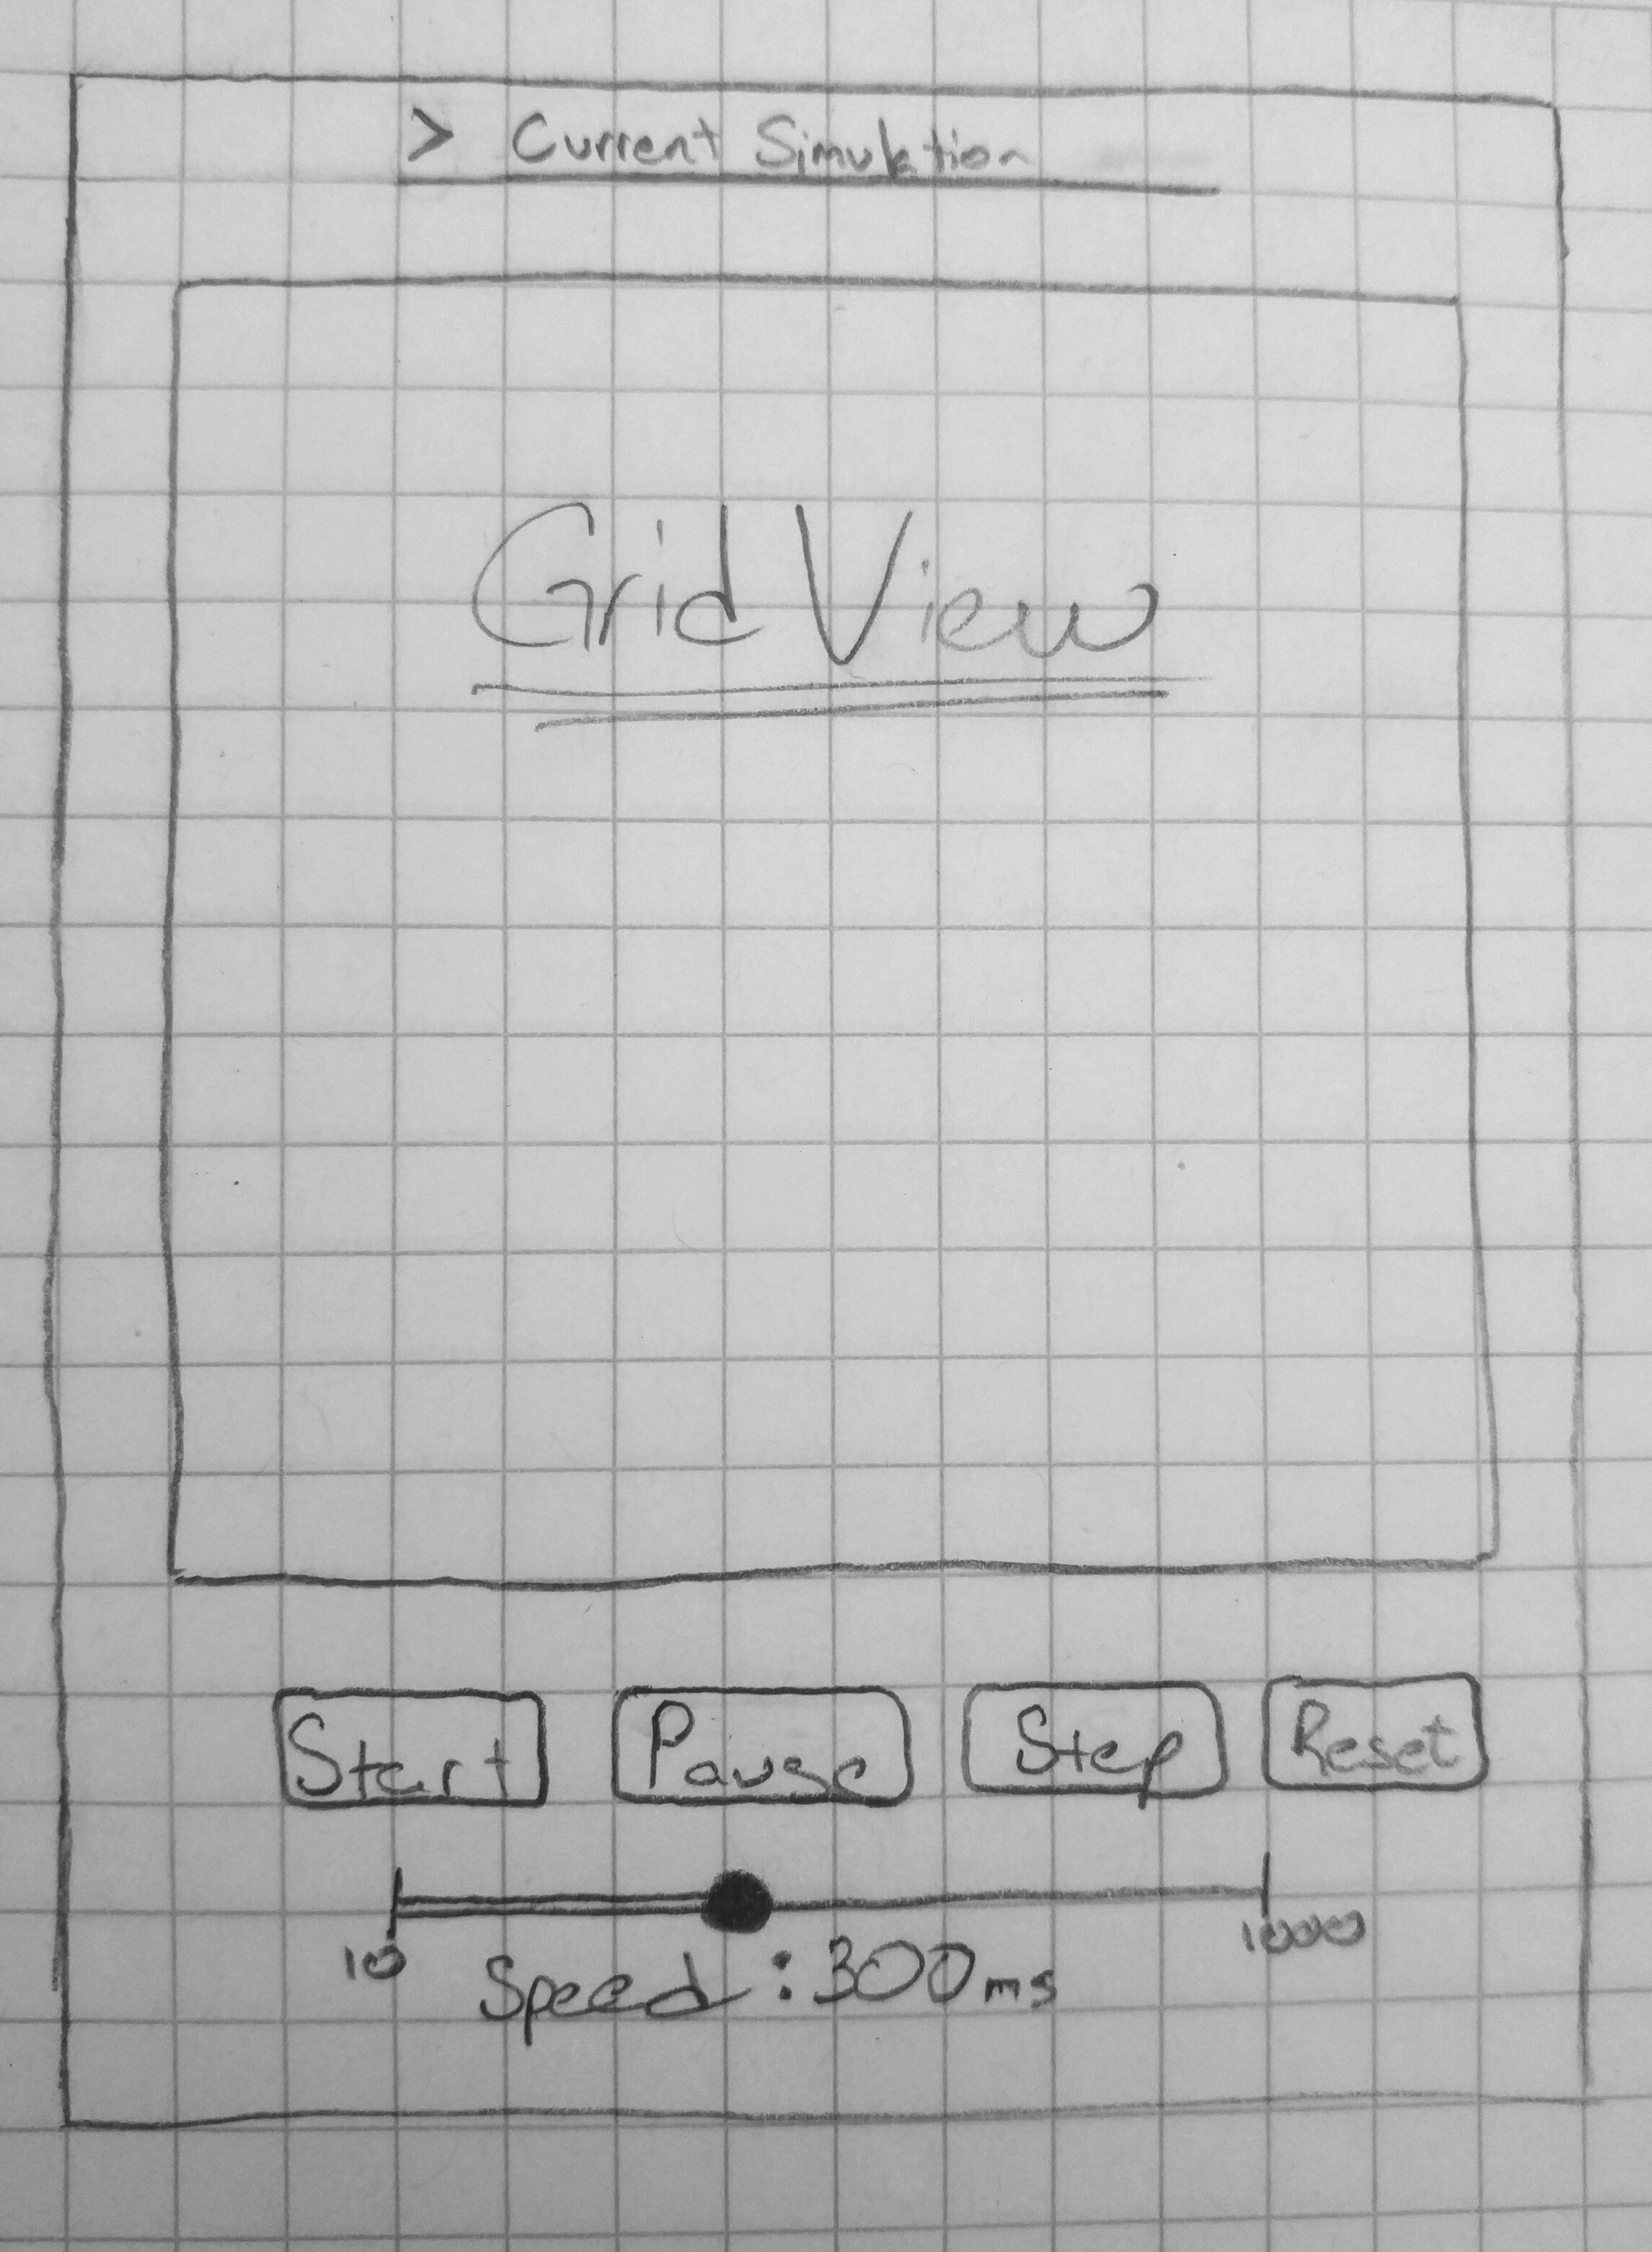 > Current Simulation
Grid View
Start Pause Step Reset
10 1000
Speed : 300ms